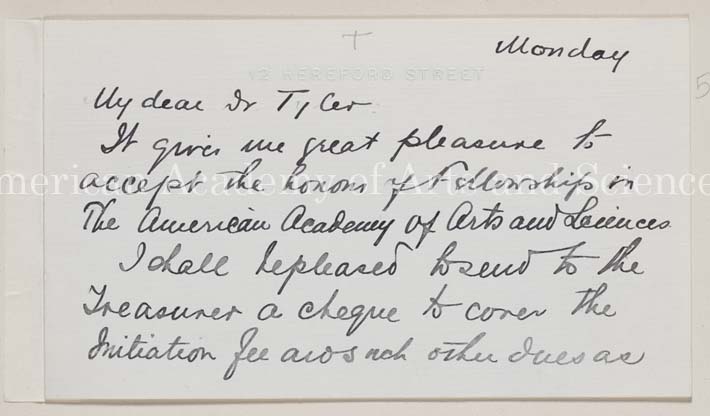 Monday
12 HEREFORD STREET
My dear Dr Tyler
It gives me great pleasure to
accept the honors of Fellowship in
American Academy of Arts and Science
The American Academy of Arts and Sciences
I shall be pleased to send to the
Treasurer a cheque to cover the
Initiation fee and such other dues as
5